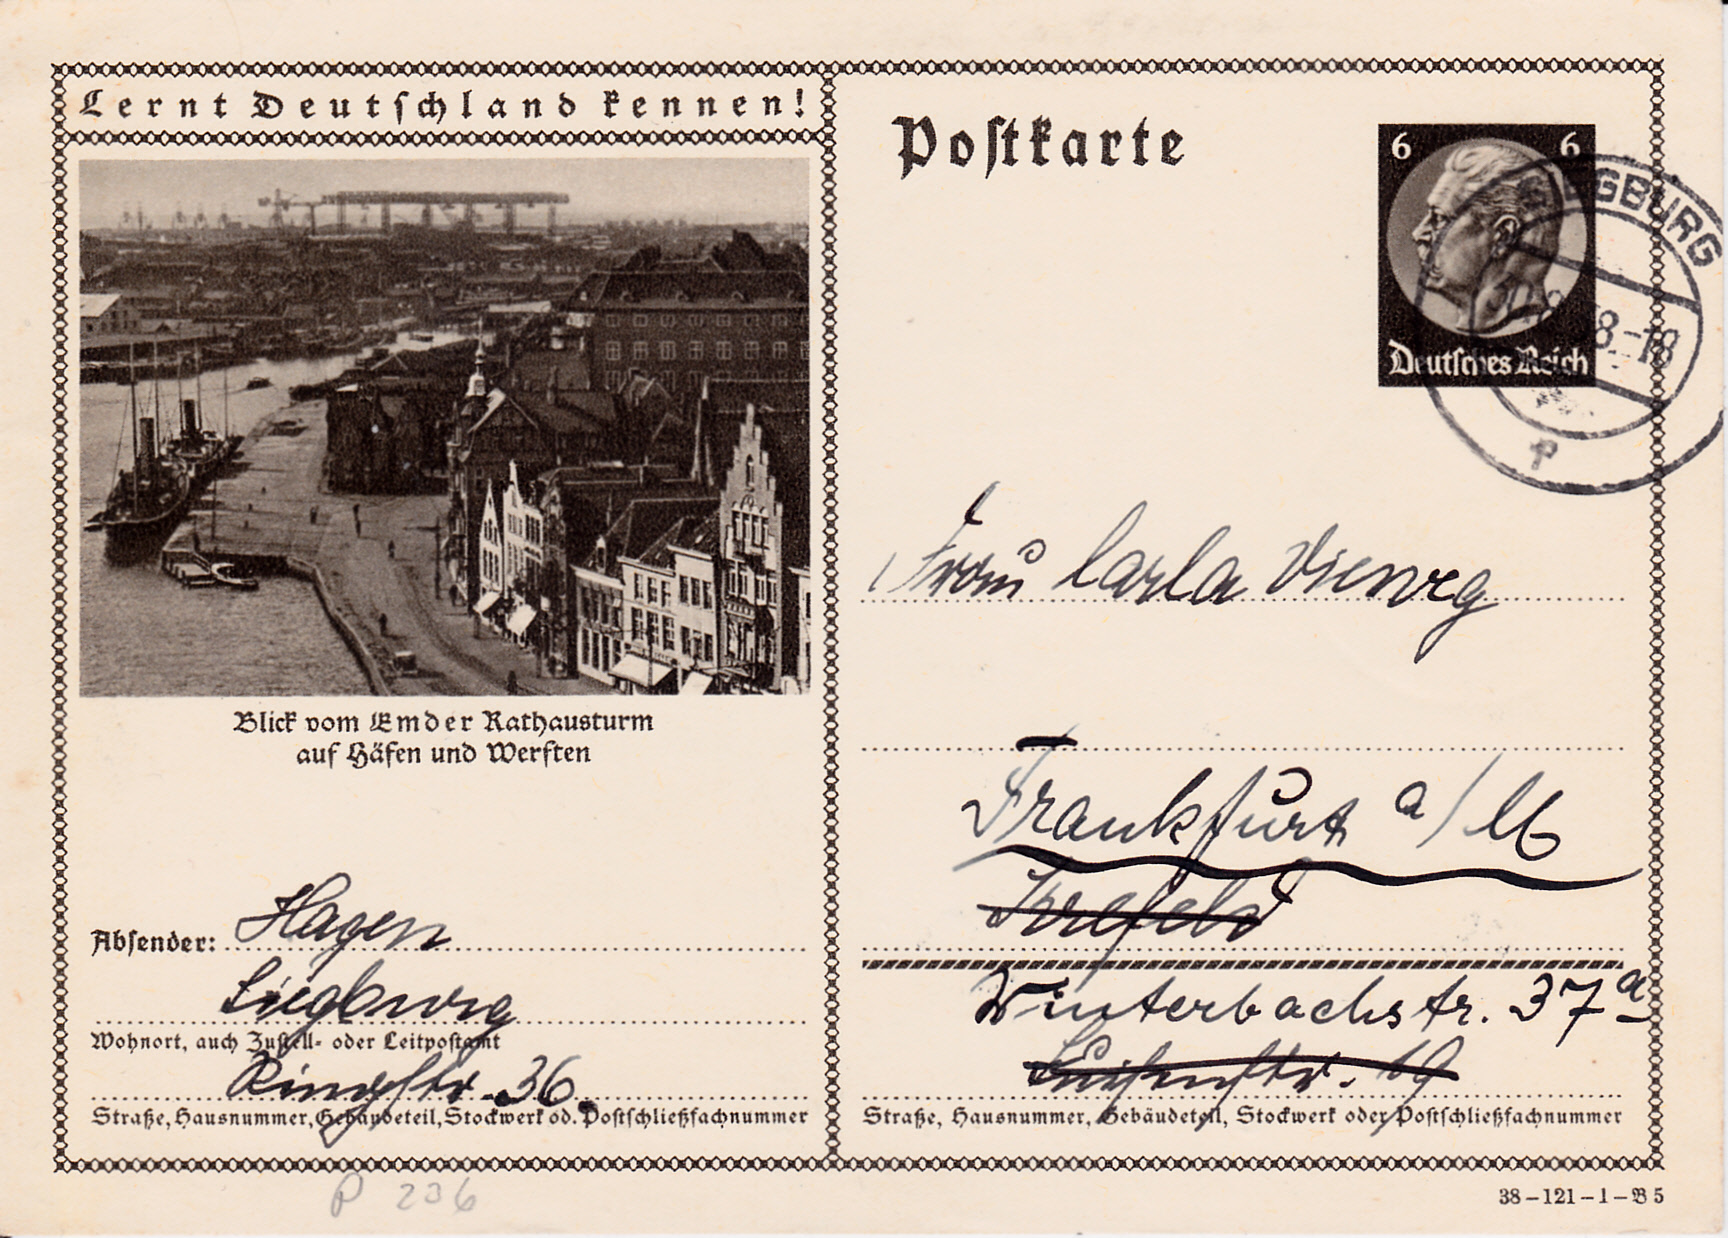 Lernt Deutschland kennen!
Blick vom Emder Rathausturm
auf Häfen und Werften
Absender: Hagen
Siegburg
Wohnort, auch Zustell- oder Leitpostamt
Ringstr. 36.
Straße, Hausnummer, Gebäudeteil, Stockwerk od. Postschließfachnummer
P 236
Postkarte
6 6
Deutsches Reich
SIEGBURG
8-18
Frau Carla Vieweg
Frankfurt a/M
Krefeld
Winterbachstr. 37a
Luisenstr. 19
Straße, Hausnummer, Gebäudeteil, Stockwerk oder Postschließfachnummer
38-121-1-B 5